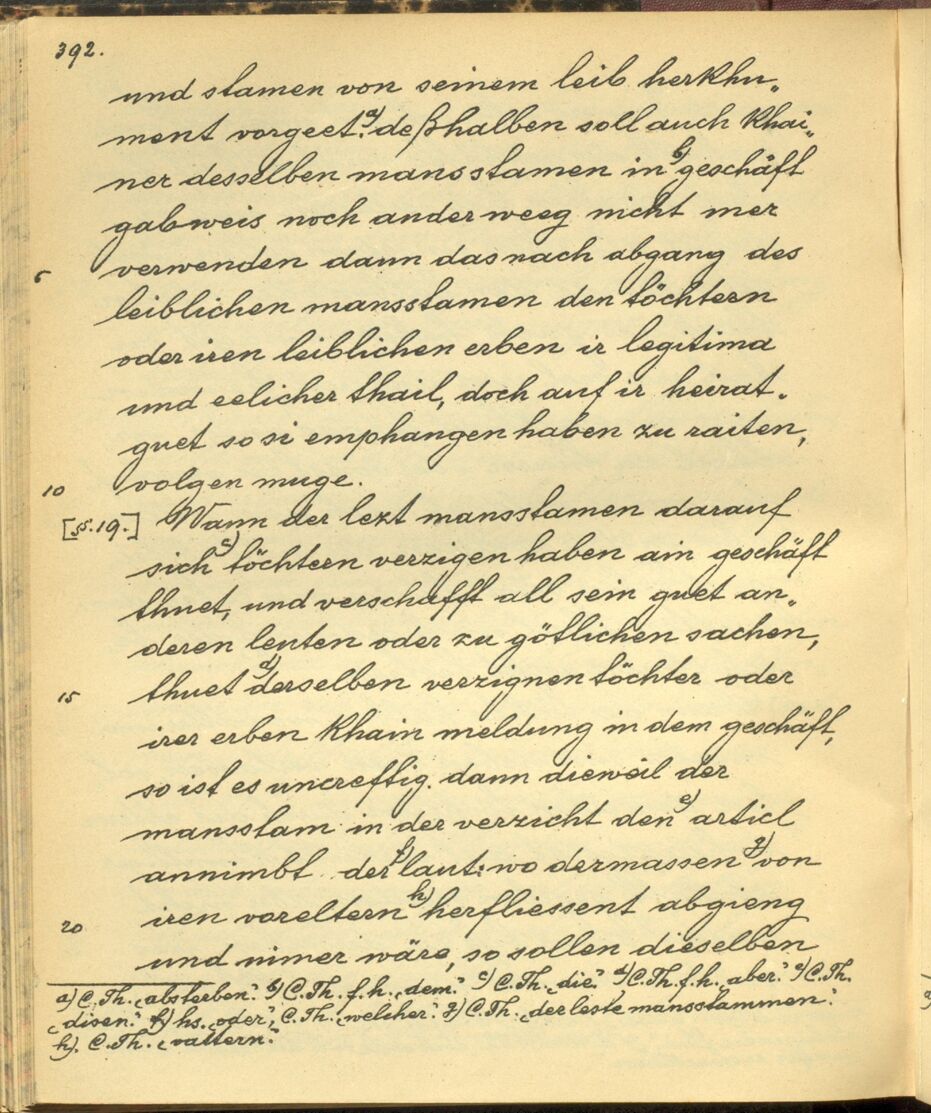 392.
und stamen von seinem leib herkhu„
ment vorgeet.a) deßhalben soll auch khai„
ner desselben mansstamen in b) geschäft
gabweis noch ander weeg nicht mer
5 verwenden dann das nach abgang des
leiblichen mansstamen den töchtern
oder iren leiblichen erben ir legitima
und eelicher thail, doch auf ir heirat„
guet so si emphangen haben zu raiten,
10 volgen muge.
[§.19.] Wann der lezt mansstamen darauf
sich c) töchtern verzigen haben ain geschäft
thuet, und verschafft all sein guet an„
deren leuten oder zu götlichen sachen,
15 thuet d) derselben verzignen töchter oder
irer erben khain meldung in dem geschäft,
so ist es uncreftig. dann dieweil der
mansstam in der verzicht den e) articl
annimbt der f) laut: wo dermassen g) von
20 iren voreltern h) herfliessent abgieng
und nimer wäre, so sollen dieselben
a) C. Th. „absterben.“ b) C. Th. f. h. „dem.“ c) C. Th. „die.“ d) C. Th. f. h. „aber.“ e) C. Th.
„disen.“ f) hs. „oder“, C. Th. „welcher.“ g) C. Th. „der leste mansstammen.“
h). C. Th. „vättern.“